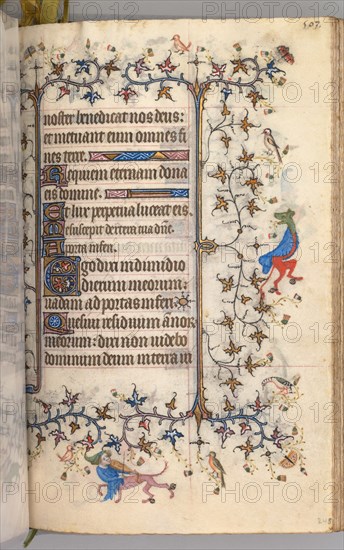 307.
noster benedicat nos deus:
et metuant eum omnes fi
nes terre.
Requiem eternam dona
eis domine.
Et lux perpetua luceat eis.
A porta inferi.
Ego dixi in dimidio
dierum meorum:
vadam ad portas inferi.
Quesivi residuum annor
meorum: dixi non videbo
dominum deum in terra vi